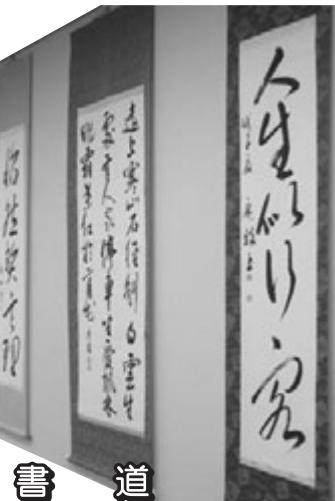 人生似行客
遠上寒山石径斜白雲生
處有人家停車坐愛楓林
晩霜葉紅於二月花
書道